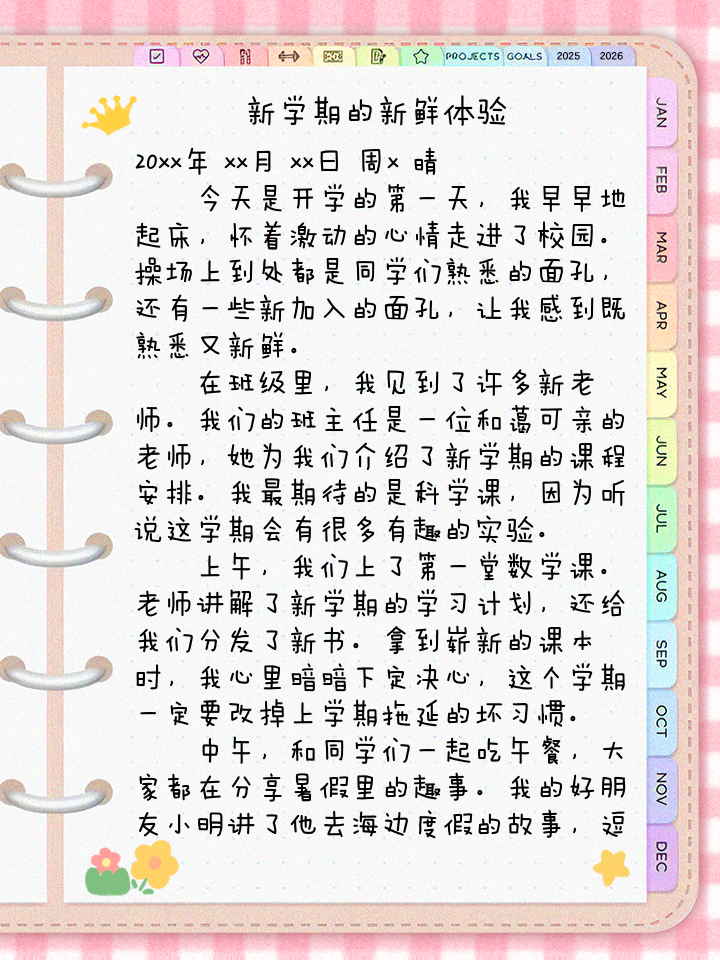 PROJECTS
GOALS
2025
2026
新学期的新鲜体验
20xx年 xx月 xx日 周x 晴
今天是开学的第一天，我早早地
起床，怀着激动的心情走进了校园。
操场上到处都是同学们熟悉的面孔，
还有一些新加入的面孔，让我感到既
熟悉又新鲜。
在班级里，我见到了许多新老
师。我们的班主任是一位和蔼可亲的
老师，她为我们介绍了新学期的课程
安排。我最期待的是科学课，因为听
说这学期会有很多有趣的实验。
上午，我们上了第一堂数学课。
老师讲解了新学期的学习计划，还给
我们分发了新书。拿到崭新的课本
时，我心里暗暗下定决心，这个学期
一定要改掉上学期拖延的坏习惯。
中午，和同学们一起吃午餐，大
家都在分享暑假里的趣事。我的好朋
友小明讲了他去海边度假的故事，逗
JAN
FEB
MAR
APR
MAY
JUN
JUL
AUG
SEP
OCT
NOV
DEC